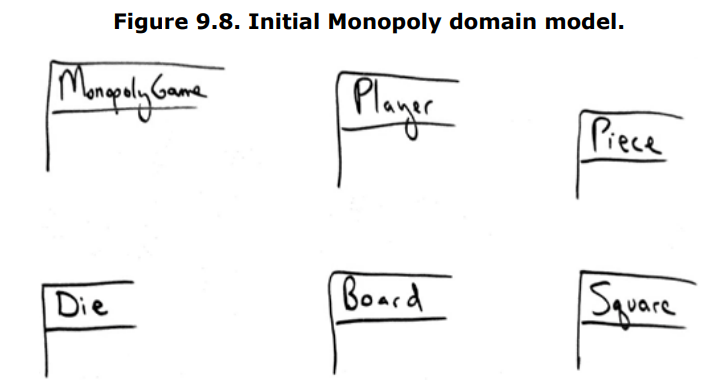 Figure 9.8. Initial Monopoly domain model.
MonopolyGame
Player
Piece
Die
Board
Square